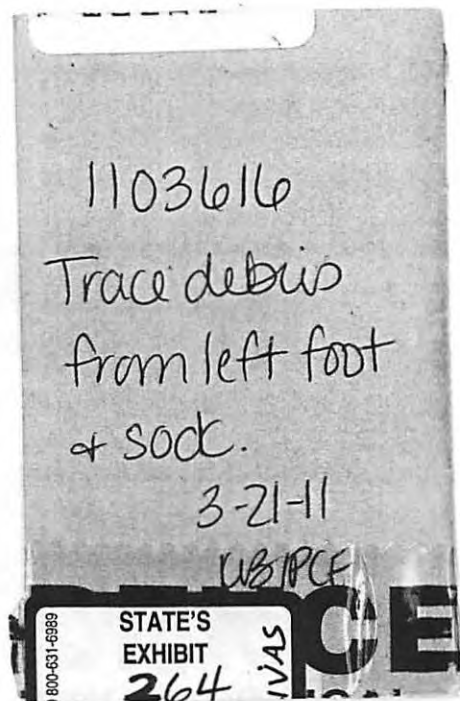 1103616
Trace debris
from left foot
& sock.
3-21-11
800-631-6989
STATE'S
EXHIBIT
264